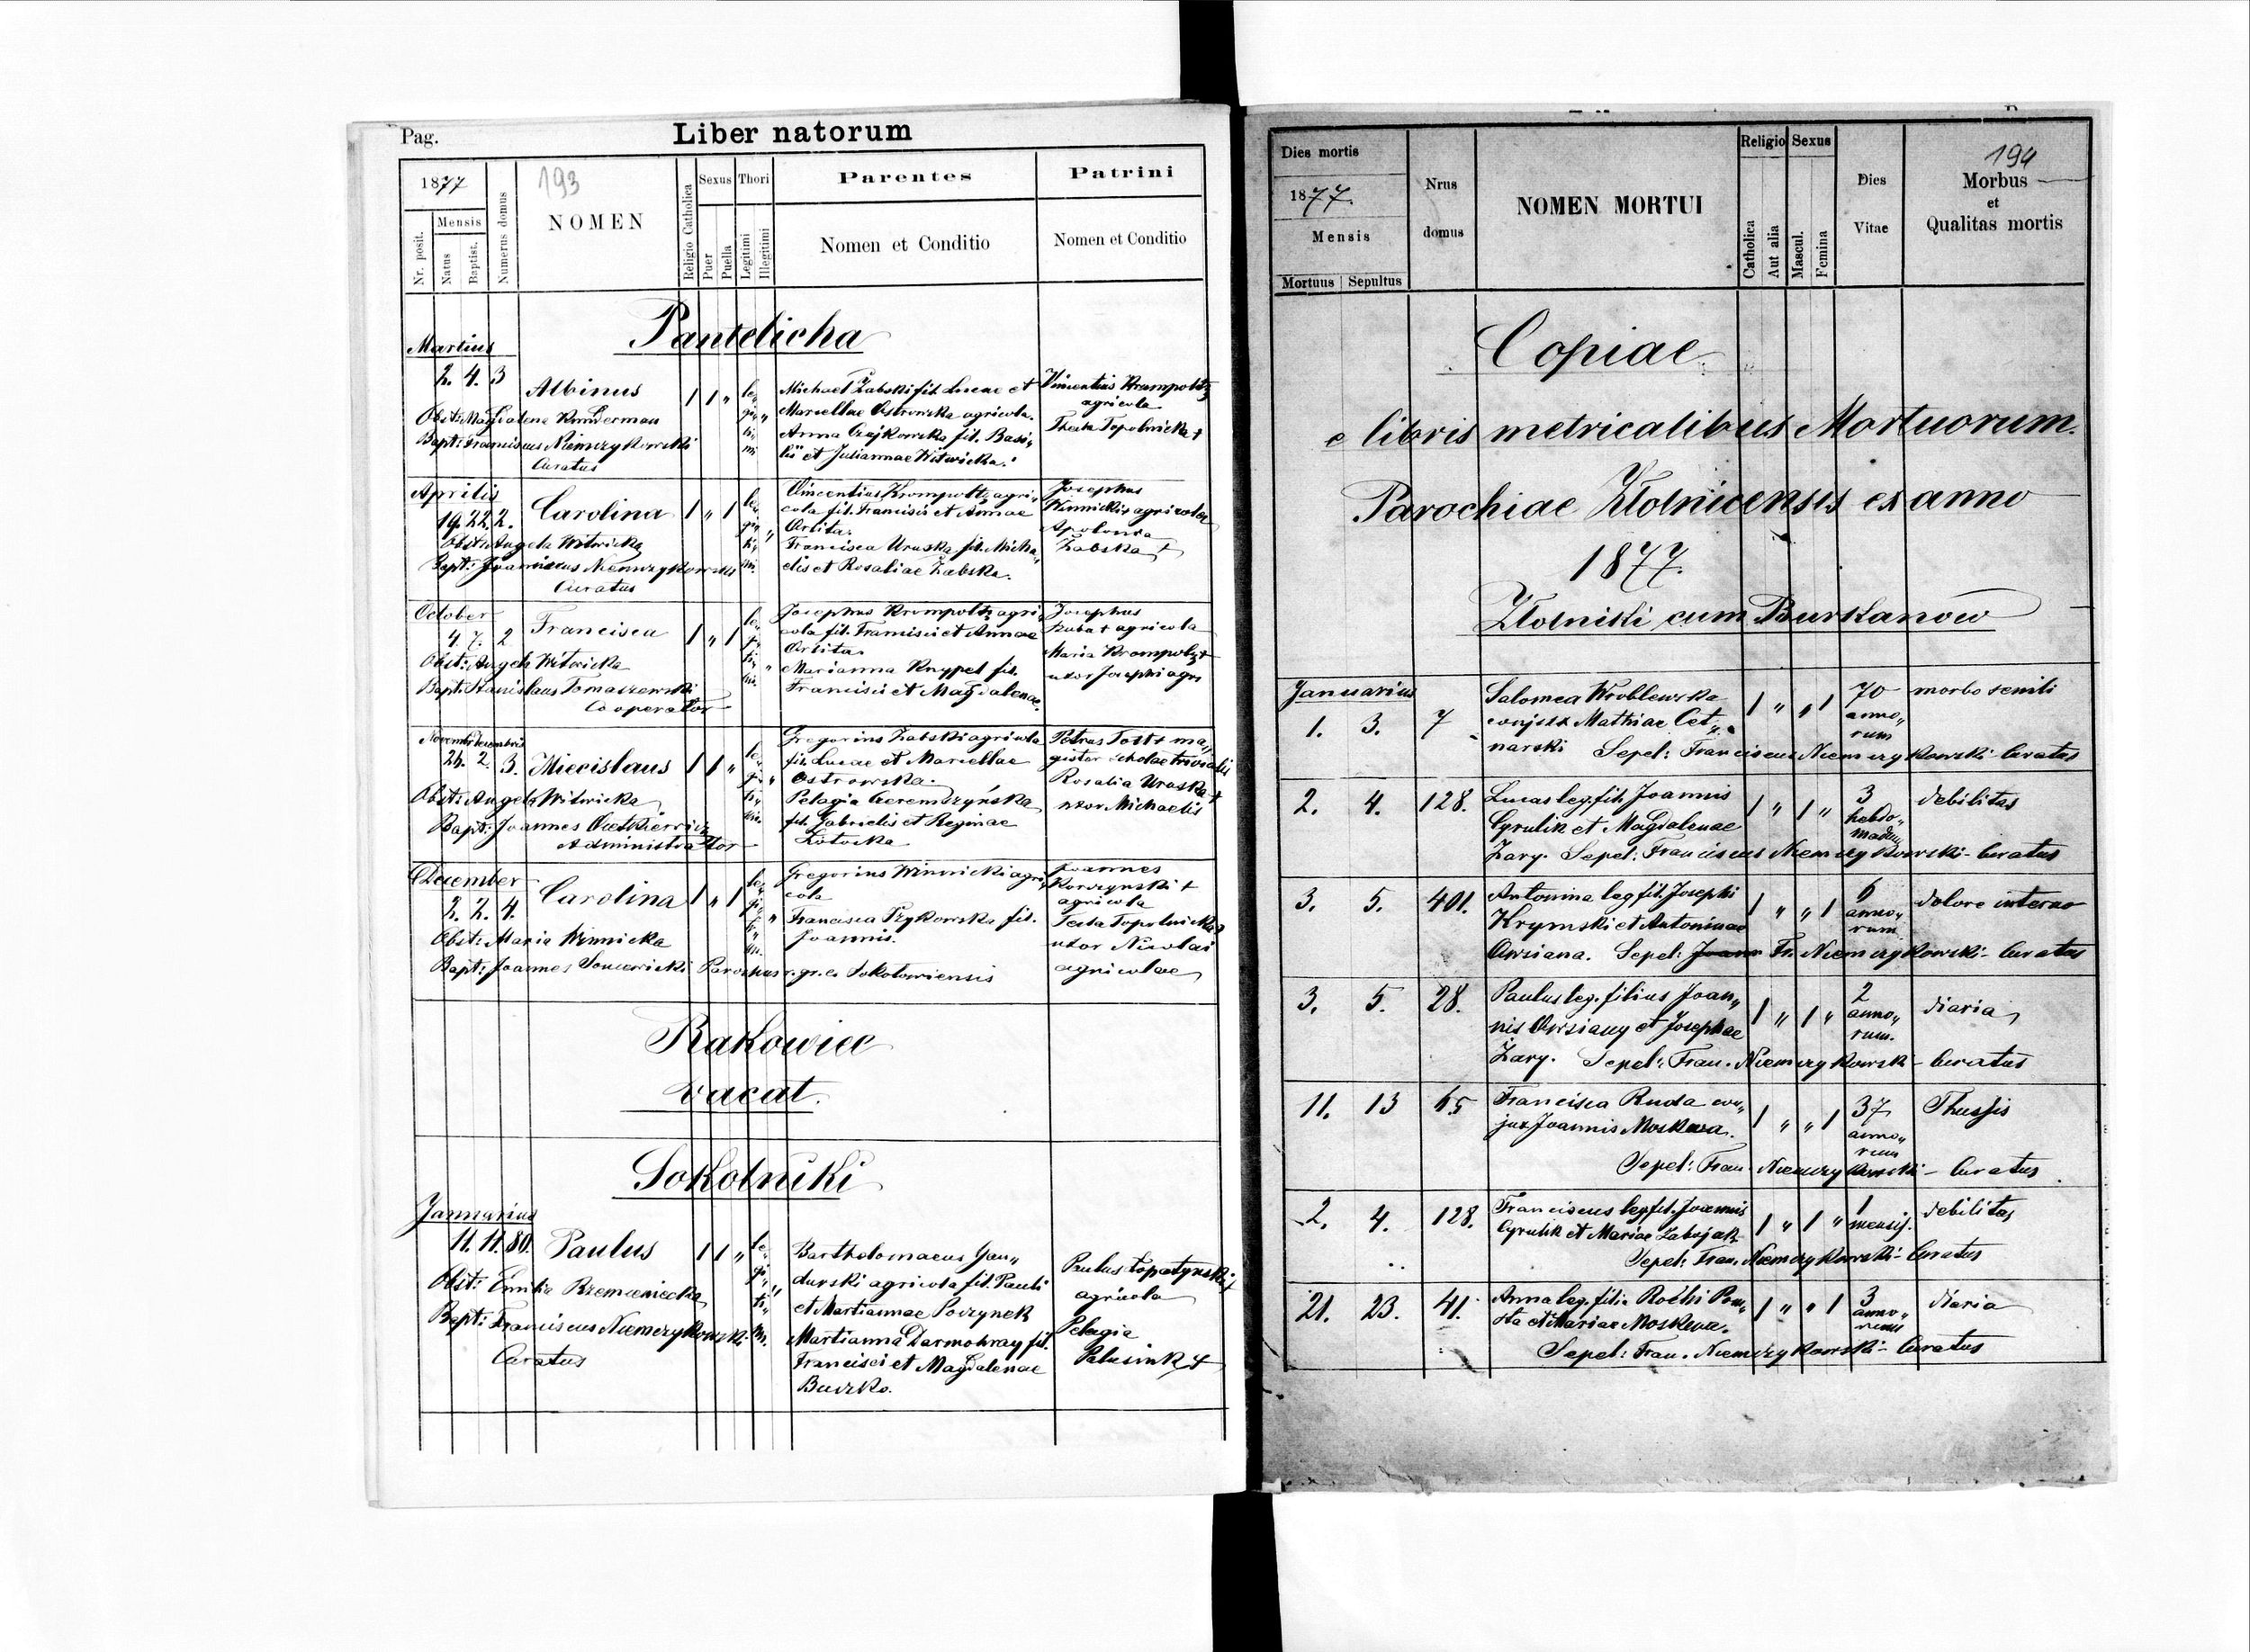 Pag.
Liber natorum
1877
193
Nr. posit.
Mensis
Natus
Baptist.
Numerus domus
NOMEN
Religio Catholica
Sexus
Puer
Puella
Thori
Legitimi
Illegitimi
Parentes
Nomen et Conditio
Patrini
Nomen et Conditio
Pantelicha
Martius
2. 4. 3
Albinus
1 1 „
Obst: Magdalena Kunderman
Bapt: Franciscus Niemczykowski
Curatus
le„
gi„ „
ti„
mi
Michael Żabski fil. Lucae et
Marcellae Ostrowska agricola.
Anna Czajkowska fil. Basi„
lii et Juliannae Witwicka.
Vincentius Krumpoltz
agricola
Thecla Topolnicka +
Aprilis
19. 22. 2.
Carolina
1 „ 1
Obst: Angela Witwicka
Bapt: Franciscus Niemczykowski
Curatus
Vincentius Krompoltz agri„
cola fil. Francisci et Annae
Orlita.
Francisca Uruska fil. Micha„
elis et Rosaliae Żabska.
Josephus
Winnicki + agricola
Apolonia
Żabska +
October
4. 7. 2
Francisca
1 „ 1
Obst: Angela Witwicka
Bapt: Stanislaus Tomaszewski
Cooperator
Josephus Krompoltz agri„
cola fil. Francisci et Annae
Orlita.
Marianna Knypel fil.
Francisci et Magdalenae.
Josephus
Kuba + agricola
Maria Krompoltz +
uxor Josephi agri
Novembr Decembris
26. 2. 3.
Miecislaus
1 1 „
Obst: Angela Witwicka
Bapt: Joannes
Administrator
Gregorius Żabski agricola
fil. Lucae et Marcellae
Ostrowska.
Pelagia Ceremczyńska
fil. Gabrielis et Reginae
Petrus Tost + ma„
gister scholae trivialis
Rosalia Uruska +
uxor Michaelis
December
2. 2. 4.
Carolina
1 „ 1
Obst: Maria Winnicka
Bapt: Joannes Parochus r. gr. c. Sokolowiensis
Gregorius Winnicki agri„
cola
Francisca fil.
Joannis.
Joannes
Korczynski +
agricola
Tecla Topolnicka
uxor Nicolai
agricolae
Rakowiec
vacat.
Sokolniki
Januarius
11. 11. 80.
Paulus
1 1 „
Obst: Emilia Krzemieniecka
Bapt: Franciscus Niemczykowski
Curatus
Bartholomaeus Gau„
durski agricola fil. Pauli
et Mariannae Poczynek
Marianna Darmohray fil.
Francisci et Magdalenae
Budzko.
Paulus Łopatynski +
agricola
Pelagia
Palusink +
Dies mortis
1877.
Mensis
Mortuus
Sepultus
Nrus
domus
NOMEN MORTUI
Religio
Catholica
Aut alia
Sexus
Mascul.
Femina
Dies
Vitae
194
Morbus
et
Qualitas mortis
Copiae
e libris metricalibus Mortuorum.
Parochiae Złotnicensis ex anno
1877.
Złotniki cum Burkanów
Januarius
1. 3. 7
Salomea Wroblewska
conjux Mathiae Cet„
narski
1 „ „ 1
70
anno„
rum
morbo senili
Sepel: Franciscus Niemczykowski - Curatus
2. 4. 128.
Lucas leg. fil. Joannis
Cyrulik et Magdalenae
Żary.
1 „ 1 „
3
hebdo„
madum
debilitas
Sepel: Franciscus Niemczykowski - Curatus
3. 5. 401.
Antonina leg fil. Josephi
Krymski et Antoninae
Owsiana.
1 „ „ 1
6
anno„
rum
dolore interno
Sepel: Joann Fr. Niemczykowski - Curatus
3. 5. 28.
Paulus leg. filius Joan„
nis Owsiany et Josephae
Żary.
1 „ 1 „
2
anno„
rum.
diaria
Sepel: Fran. Niemczykowski - Curatus
11. 13 65
Francisca Ruda con„
jux Joannis Moskwa.
1 „ „ 1
37
anno„
rum
Thussis
Sepel: Fran. Niemczykowski - Curatus
2. 4. 128.
Franciscus leg. fil. Joannis
Cyrulik et Mariae Zabujak
1 „ 1 „
1
mensis.
debilitas
Sepel: Fran. Niemczykowski - Curatus
21. 23. 41.
Anna leg. filia Rochi Pow„
sta et Mariae Moskwa.
1 „ „ 1
3
anno„
rum
diaria
Sepel: Fran. Niemczykowski - Curatus